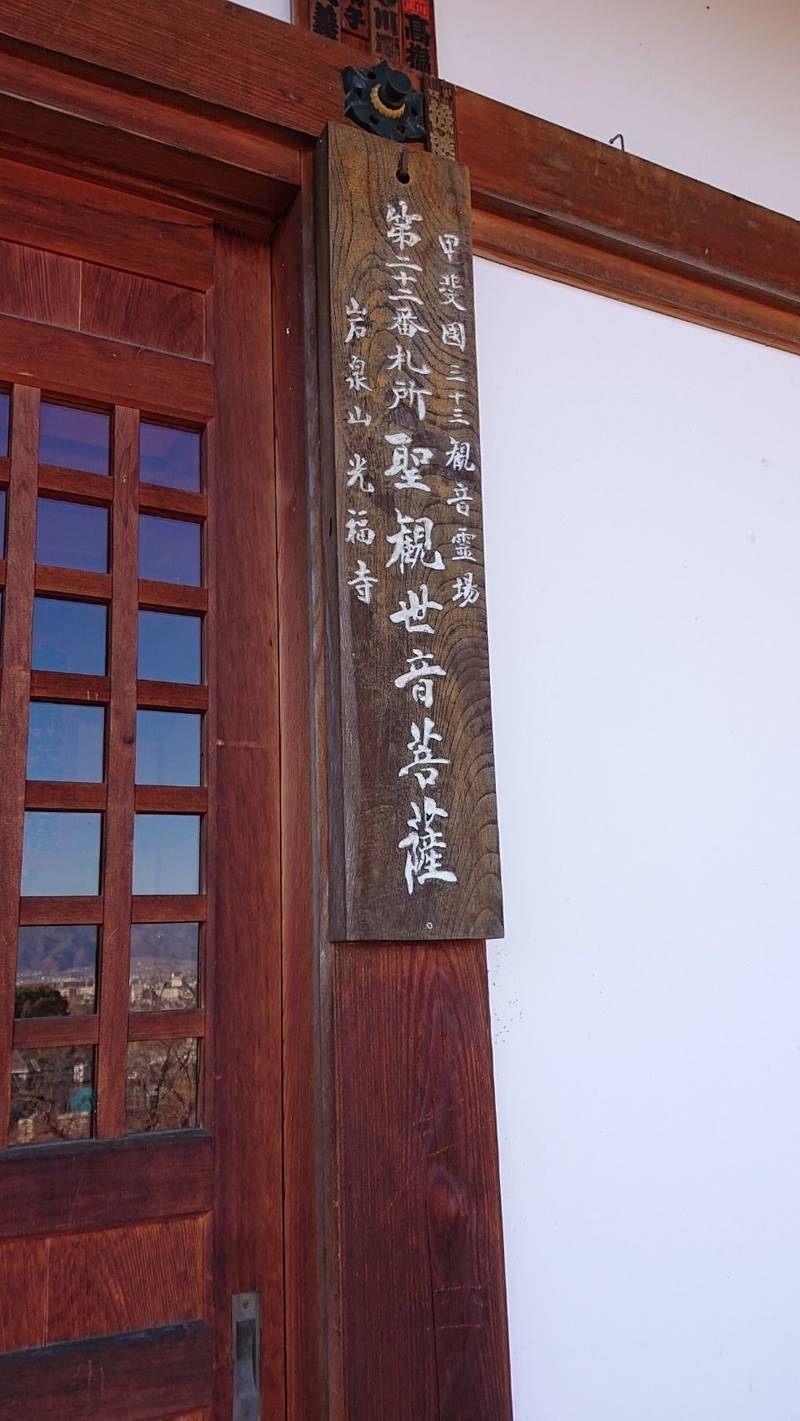 高橋
甲斐國三十三観音霊場
第二十二番札所 聖観世音菩薩
岩泉山 光福寺